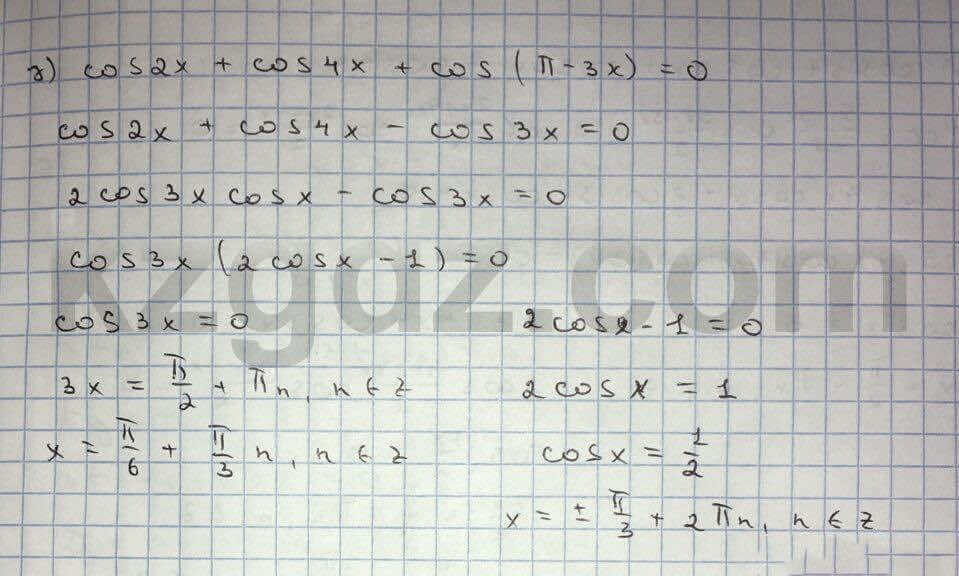 з) cos2x + cos4x + cos(π - 3x) = 0
cos2x + cos4x - cos3x = 0
2cos3x cosx - cos3x = 0
cos3x (2cosx - 1) = 0
kzgdz.com
cos3x = 0
3x = π/2 + πn, n ∈ z
x = π/6 + π/3 n, n ∈ z
2cosx - 1 = 0
2cosx = 1
cosx = 1/2
x = ± π/3 + 2πn, n ∈ z